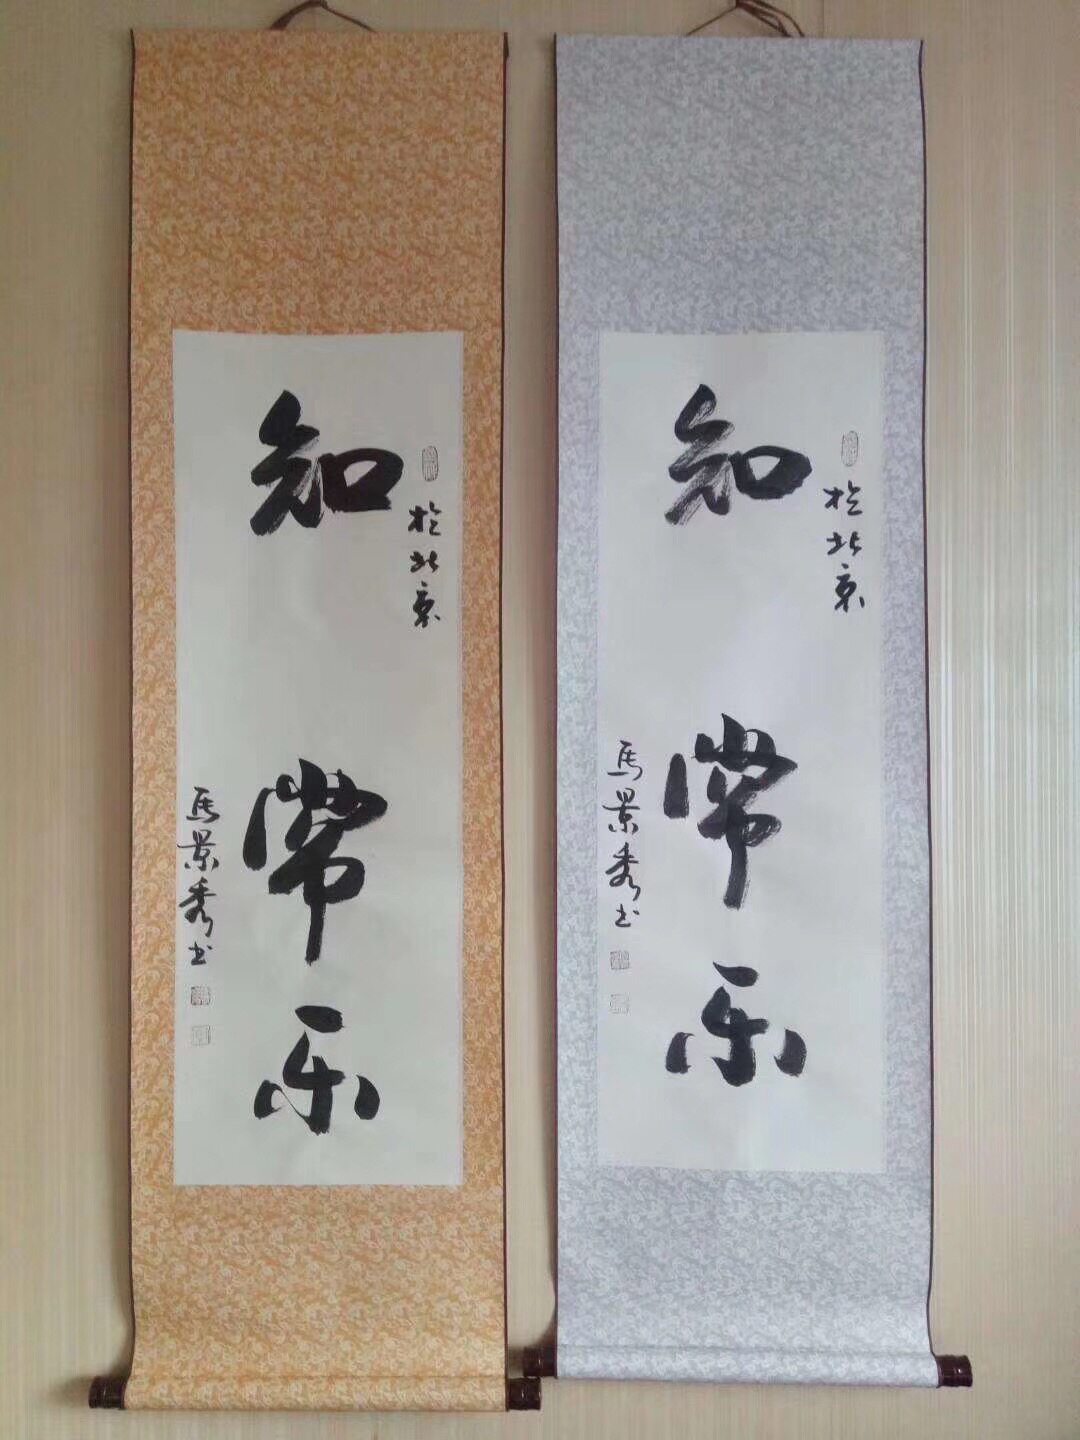 知常乐
於北京
马景秀书
知常乐
於北京
马景秀书